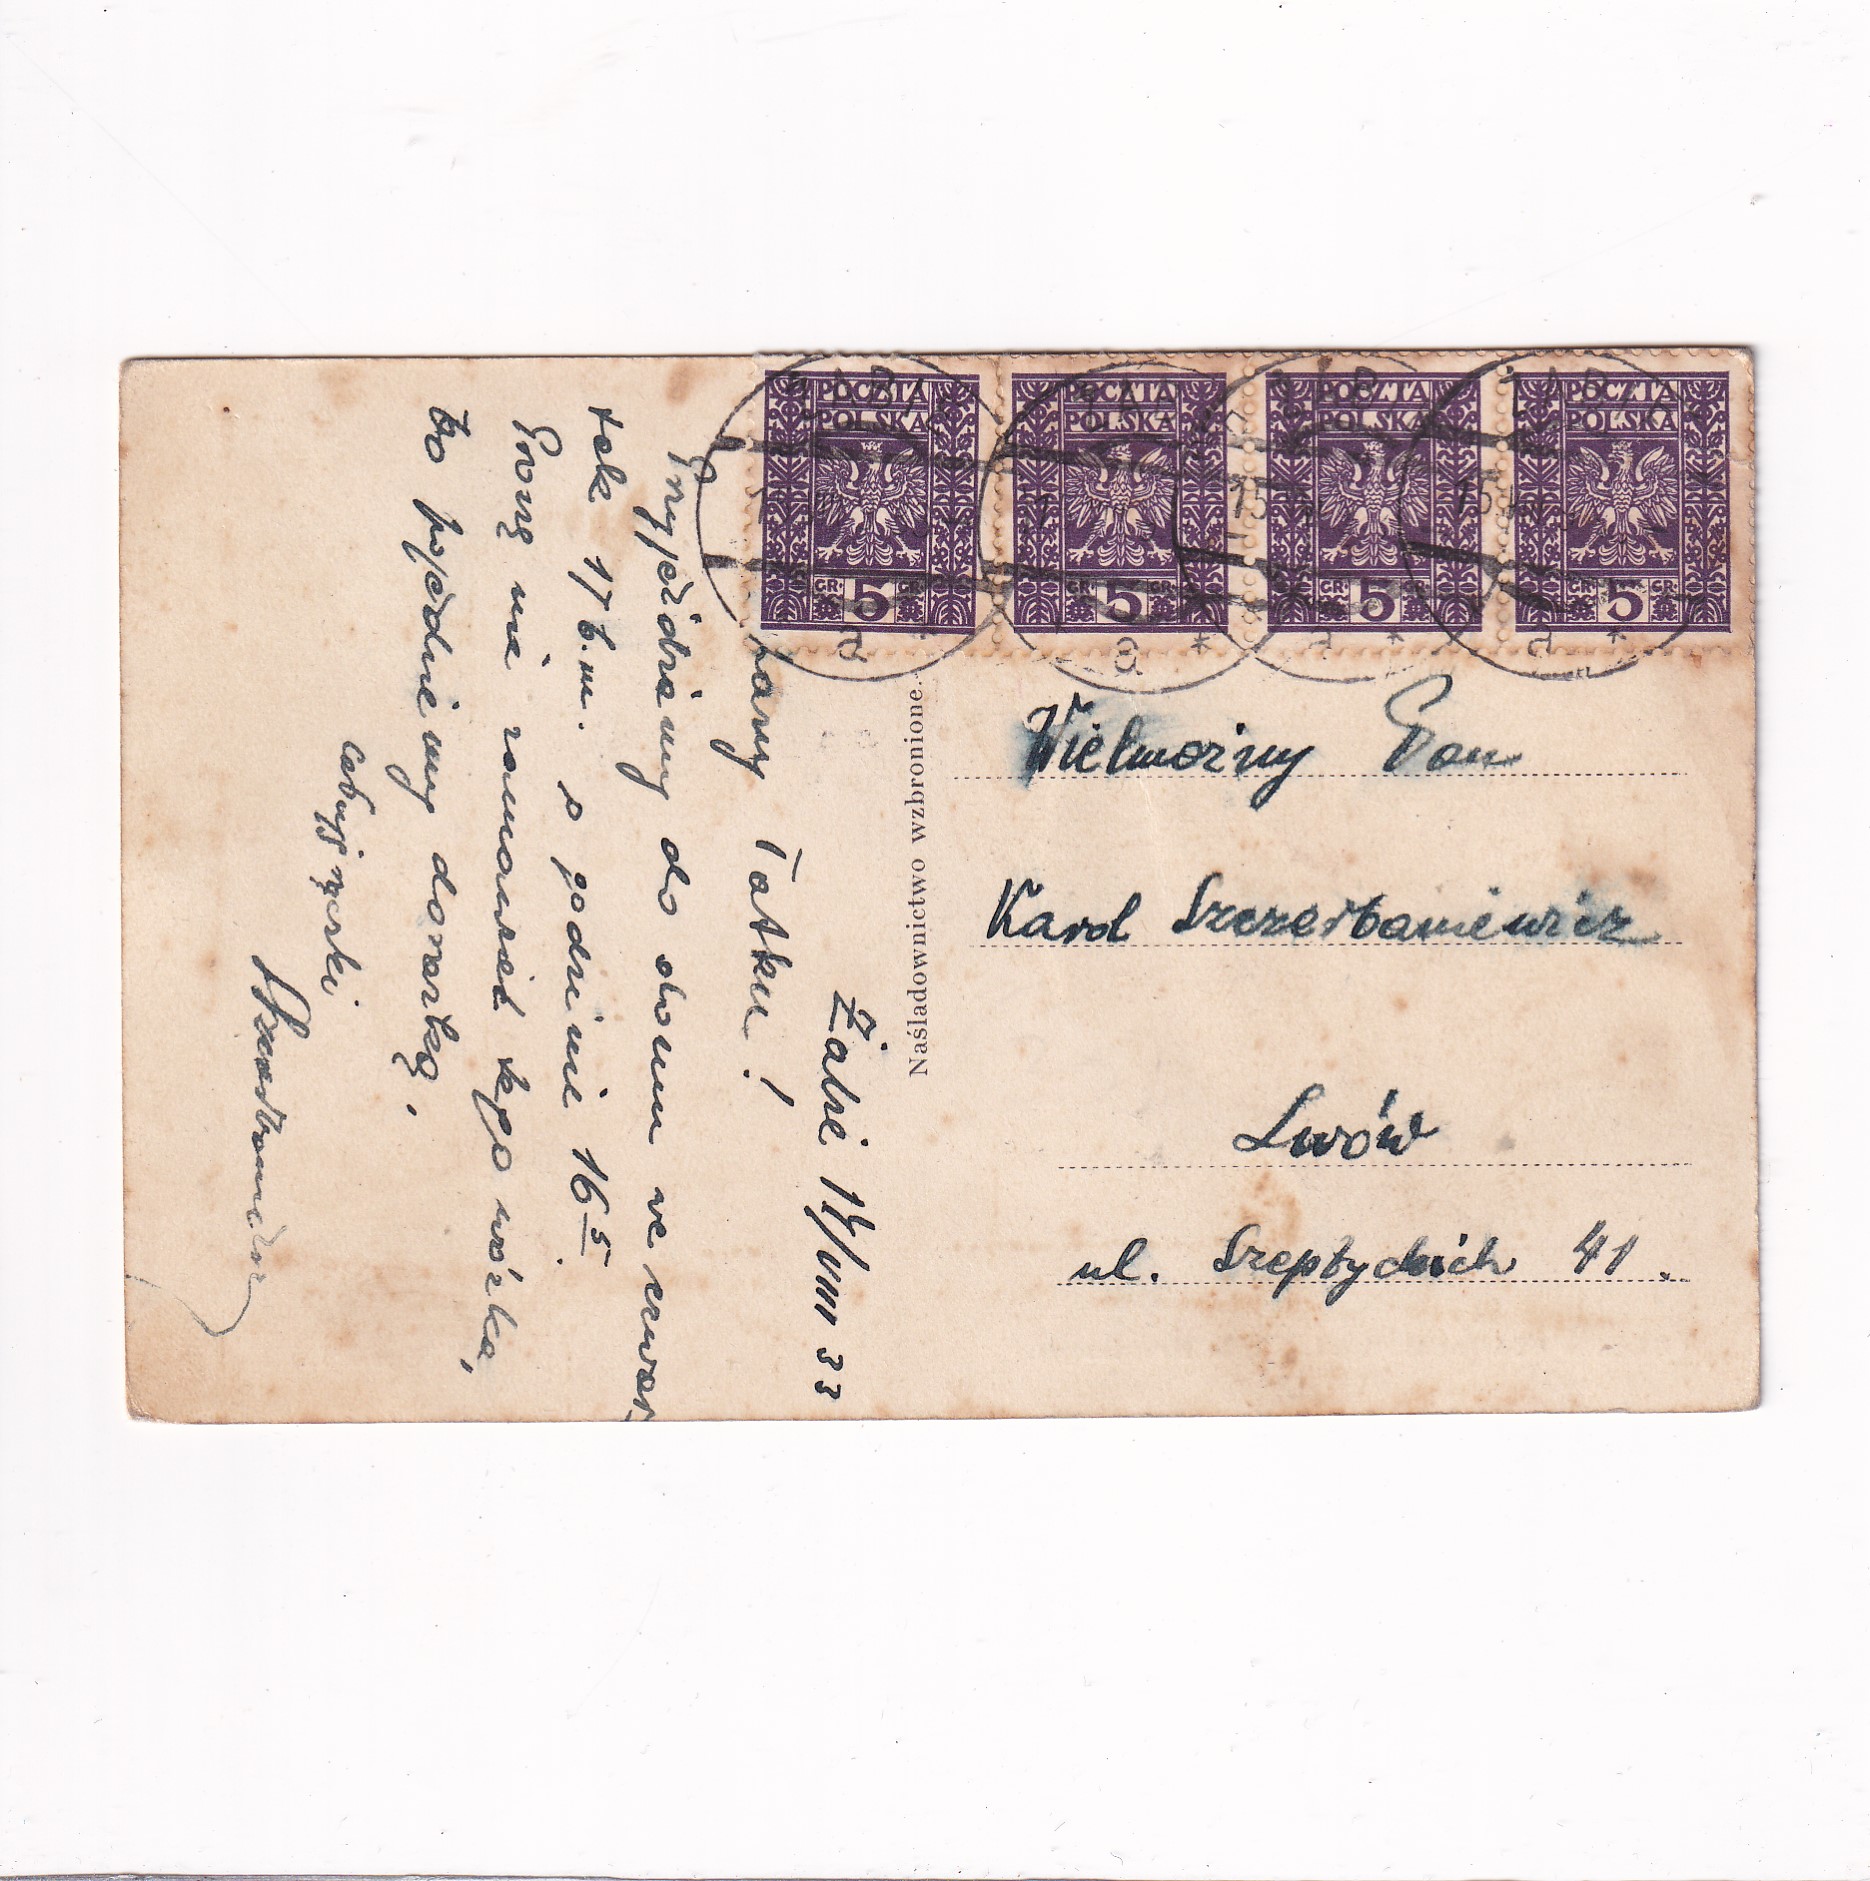 POCZTA
POLSKA
GR. 5 GR.
POCZTA
POLSKA
GR. 5 GR.
POCZTA
POLSKA
GR. 5 GR.
POCZTA
POLSKA
GR. 5 GR.
ŻABIE
a *
15
Żabie 15/VIII 33
Kochany Tatku!
Przyjeżdżamy do domu we czwar
tek 17 b.m. o godzinie 16 5
Proszę nie zamawiać tego wózka,
bo pojedziemy dorożką,
całuję rączki
Naśladownictwo wzbronione.
Wielmożny Pan
Karol Szczerbaniewicz
Lwów
ul. Szeptyckich 41.